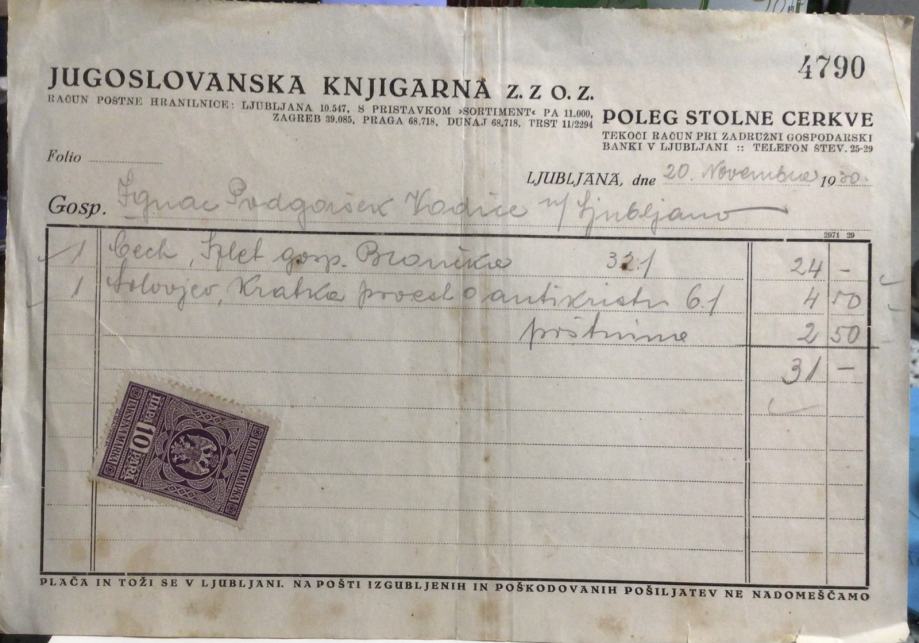 4790
JUGOSLOVANSKA KNJIGARNA Z. Z O. Z.
RAČUN POSTNE HRANILNICE: LJUBLJANA 10.547, S PRISTAVKOM »SORTIMENT« PA 11.000,
ZAGREB 39.085, PRAGA 68.718, DUNAJ 68.718, TRST 11/2294
POLEG STOLNE CERKVE
TEKOČI RAČUN PRI ZADRUŽNI GOSPODARSKI
BANKI V LJUBLJANI :: TELEFON ŠTEV. 25-29
Folio
LJUBLJANA, dne 20. Novembra 1930.
Gosp. Ignac Podgoršek Vodice n/Ljubljano
2971 29
1 Čech, Izlet gosp. Broučka 32.1 24 -
1 Solovjev, Kratka povest o antikristu 6.1 4 50
poštnina 2 50
31 -
10 PARA
PLAČA IN TOŽI SE V LJUBLJANI. NA POŠTI IZGUBLJENIH IN POŠKODOVANIH POŠILJATEV NE NADOMEŠČAMO